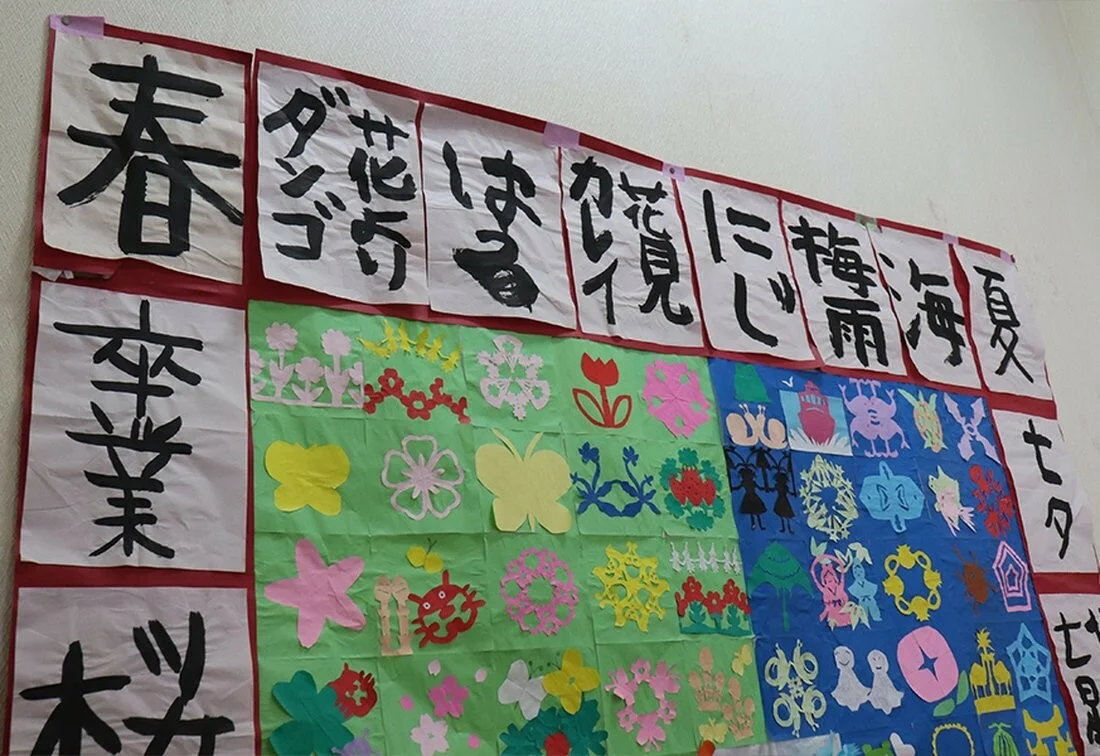 春
花より
ダンゴ
はる
花見
カレイ
にじ
梅雨
海
夏
卒業
七夕
桜